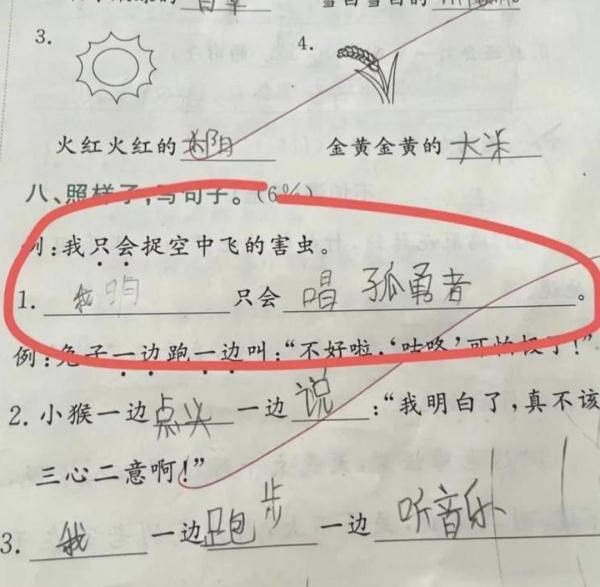 3. 4.
火红火红的 太阳 金黄金黄的 大米
八、照样子,写句子。(6%)
例:我只会捉空中飞的害虫。
1. 我 只会 唱 孤勇者 。
例:兔子一边跑一边叫:“不好啦,‘咕咚’可怕极了!”
2. 小猴一边 点头 一边 说 :“我明白了,真不该
三心二意啊!”
3. 我 一边 跑步 一边 听音乐